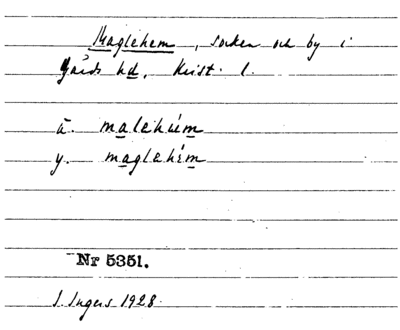 Maglehem, socken och by i
Gärds hd. Krist. l.
ä. malehúm
y. maglehém
Nr 5351.
I. Ingers 1928.